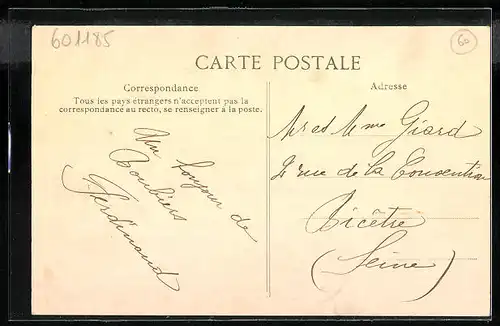 601185
60
CARTE POSTALE
Correspondance
Tous les pays étrangers n'acceptent pas la
correspondance au recto, se renseigner à la poste.
Un bonjour de
Ferdinand
Adresse
Mr et Mme Giard
rue de la Convention
Bicêtre
(Seine)